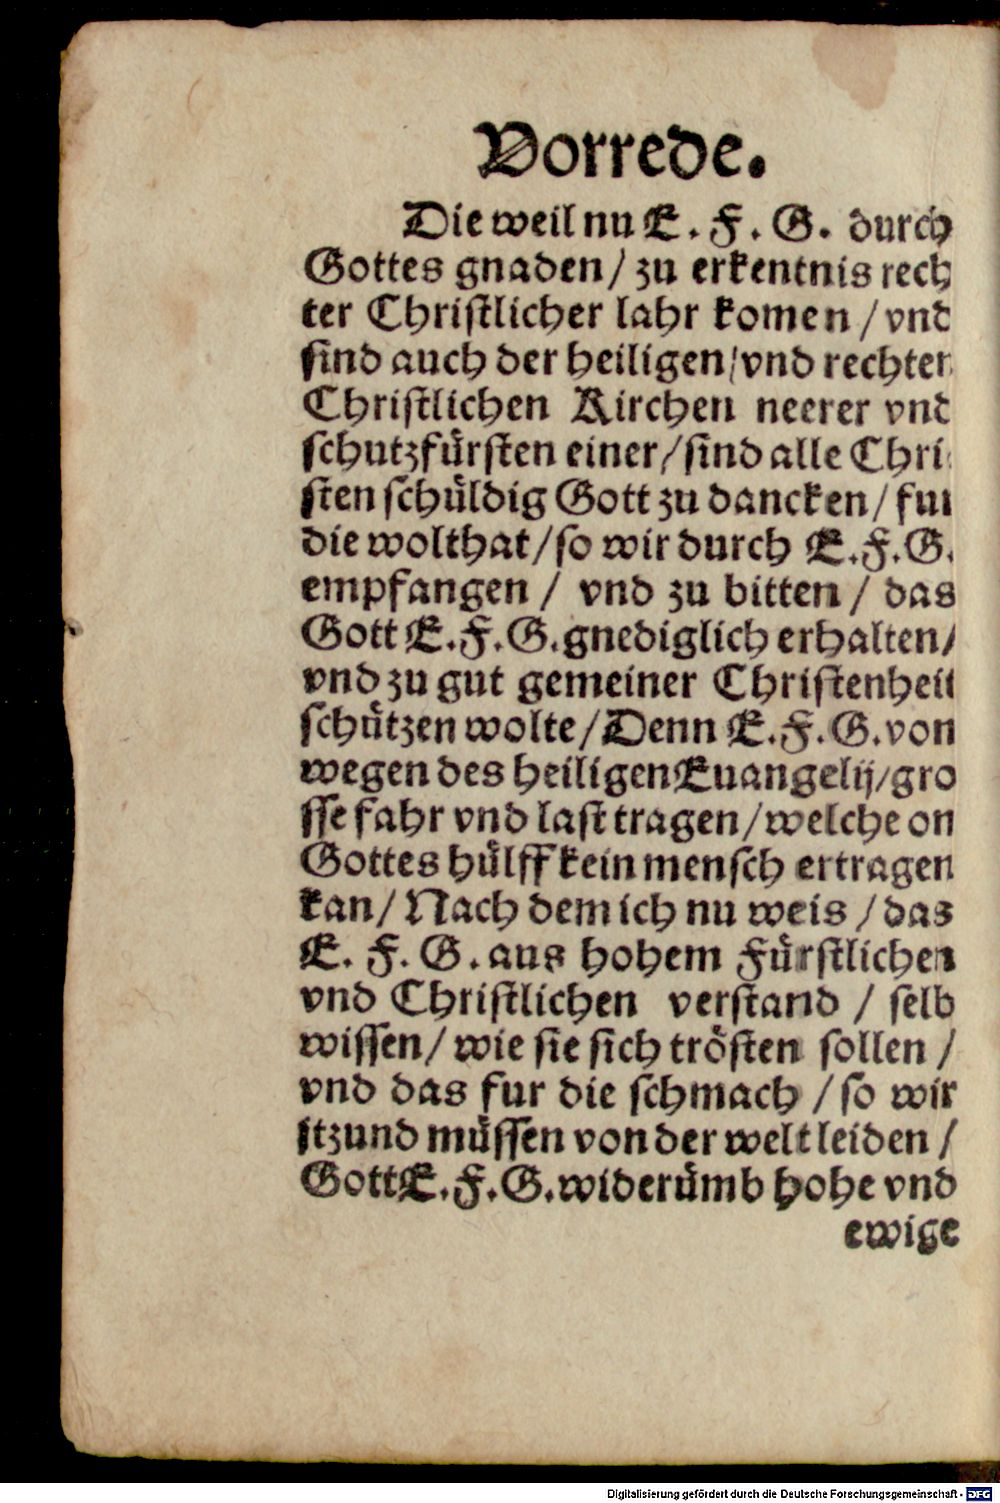 Vorrede.
Die weil nu E. F. G. durch
Gottes gnaden/ zu erkentnis rech
ter Christlicher lahr komen / vnd
sind auch der heiligen/ vnd rechter
Christlichen Kirchen neerer vnd
schutzfürsten einer/ sind alle Chri
sten schüldig Gott zu dancken/ fur
die wolthat/ so wir durch E.F.G.
empfangen / vnd zu bitten / das
Gott E.F.G. gnediglich erhalten/
vnd zu gut gemeiner Christenheit
schützen wolte/ Denn E.F.G. von
wegen des heiligen Euangelij/ gro
sse fahr vnd last tragen/ welche on
Gottes hülff kein mensch ertragen
kan/ Nach dem ich nu weis / das
E. F. G. aus hohem Fürstlichen
vnd Christlichen verstand / selb
wissen/ wie sie sich trösten sollen /
vnd das fur die schmach / so wir
itzund müssen von der welt leiden /
Gott E.F.G. widerümb hohe vnd
ewige
Digitalisierung gefördert durch die Deutsche Forschungsgemeinschaft - DFG